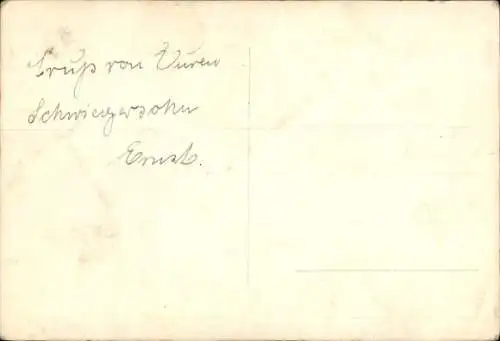 Gruß von Euren
Schwiegersohn
Ernst.